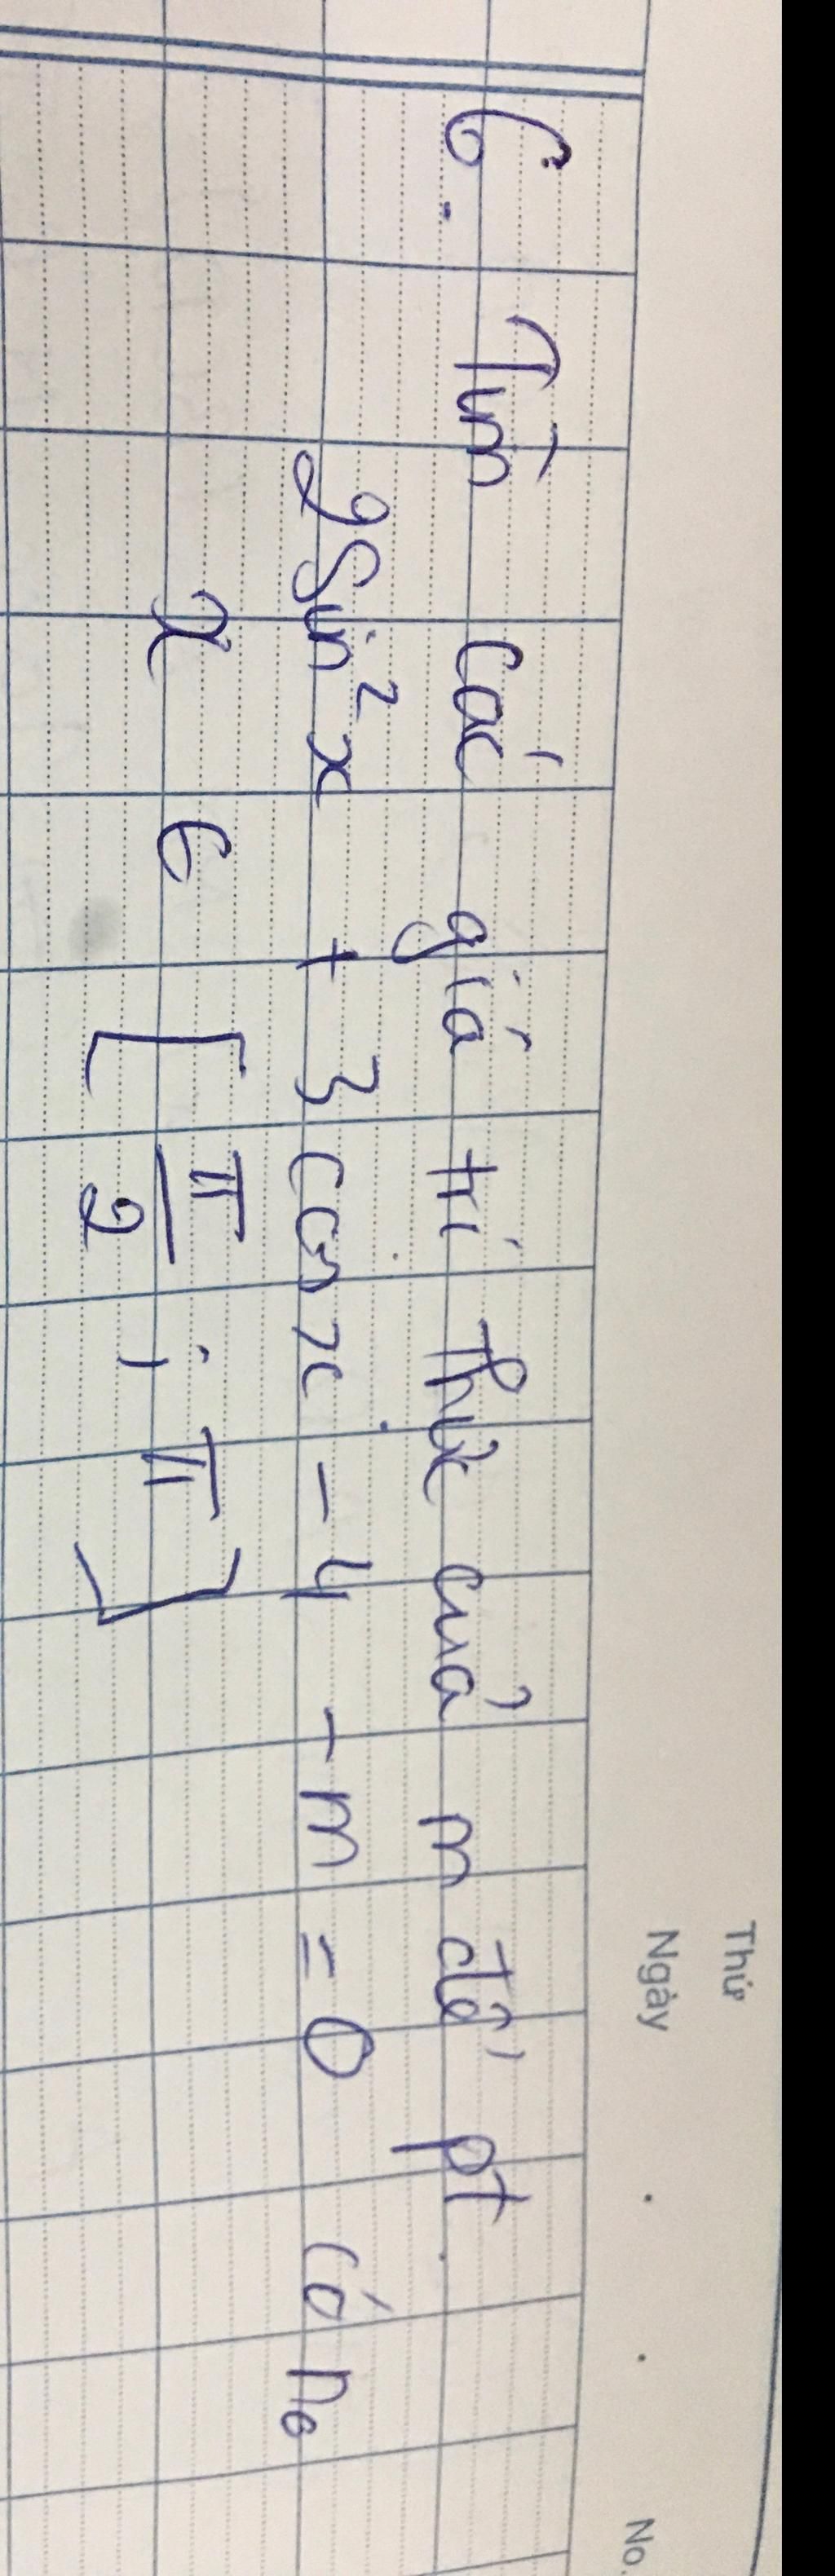 Thứ
Ngày . . No.
6. Tìm các giá trị thực của m để pt
2Sin²x + 3cosx - 4 - m = 0 có n₀
x ∈ [π/2 ; π]